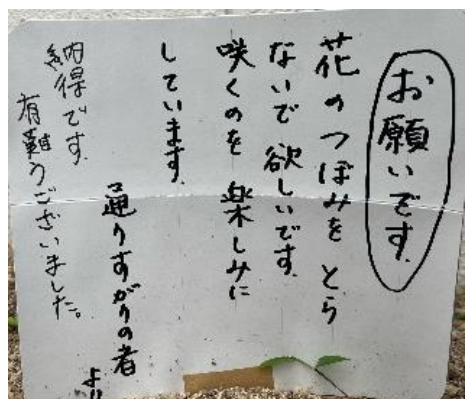 お願いです.
花のつぼみをとら
ないで欲しいです.
咲くのを楽しみに
しています.
通りすがりの者
より
納得です.
有難うございました。